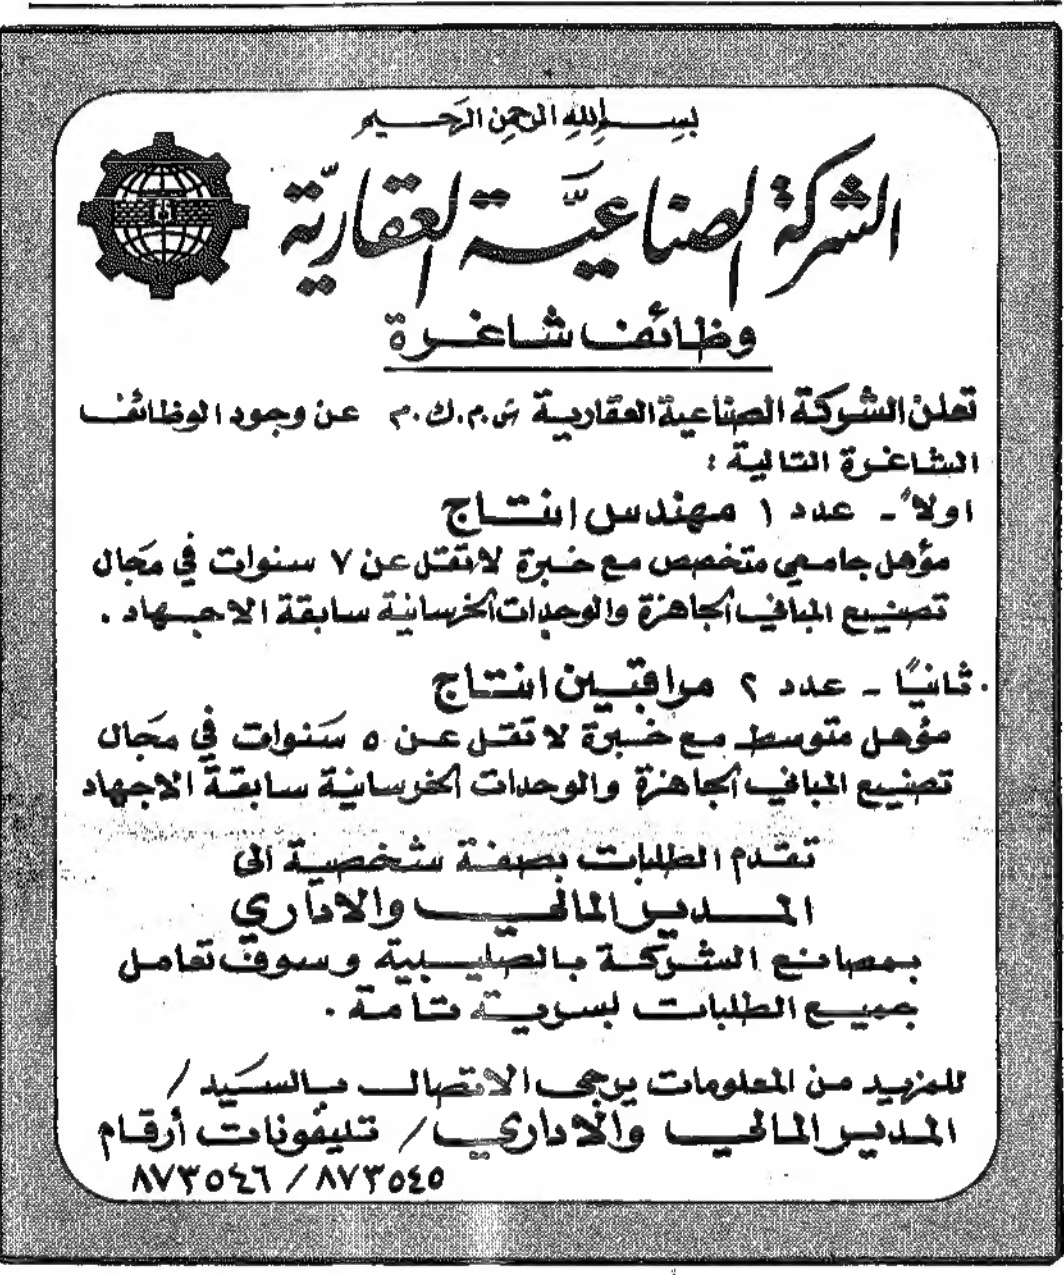 بسم الله الرحمن الرحيم
الشركة الصناعيَّة العقاريّة
وظائف شاغرة
تعلن الشركة الصناعية العقارية ش.م.ك.م عن وجود الوظائف
الشاغرة التالية :
اولاً - عدد ١ مهندس انتاج
مؤهل جامعي متخصص مع خبرة لاتقل عن ٧ سنوات في مجال
تصنيع المباني الجاهزة والوحدات الخرسانية سابقة الاجهاد .
ثانيًا - عدد ٢ مراقبين انتاج
مؤهل متوسط مع خبرة لا تقل عن ٥ سنوات في مجال
تصنيع المباني الجاهزة والوحدات الخرسانية سابقة الاجهاد
تقدم الطلبات بصفة شخصية الى
المدير المالي والاداري
بمصانع الشركة بالصليبية وسوف تعامل
جميع الطلبات بسرية تامة .
للمزيد من المعلومات يرجى الاتصال بالسيد /
المدير المالي والاداري / تليفونات أرقام
٨٧٣٥٤٥ / ٨٧٣٥٤٦